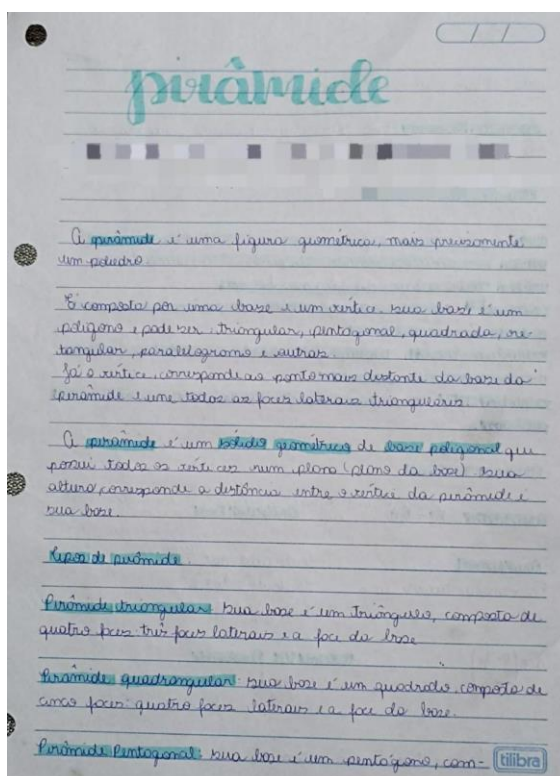 / /
pirâmide
A pirâmide é uma figura geométrica, mais precisamente
um poliedro
É composta por uma base e um vértice, sua base é um
polígono e pode ser: triangular, pentagonal, quadrada, re-
tangular, paralelogramo e outras.
Já o vértice, corresponde ao ponto mais distante da base da
pirâmide e une todas as faces laterais triangulares.
A pirâmide é um sólido geométrico de base poligonal que
possui todos os vértices num plano (plano da base) sua
altura corresponde a distância entre o vértice da pirâmide e
sua base.
Tipos de pirâmide.
Pirâmide triangular: sua base é um triângulo, composta de
quatro faces: três faces laterais e a face da base
Pirâmide quadrangular: sua base é um quadrado, composta de
cinco faces: quatro faces laterais e a face da base.
Pirâmide Pentagonal: sua base é um pentágono, com-
tilibra